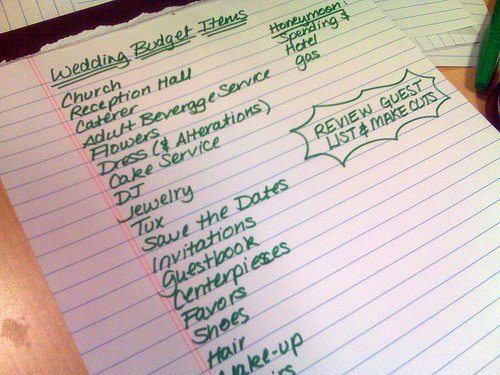 Wedding Budget Items
Church
Reception Hall
Caterer
Adult Beverage Service
Flowers
Dress (& Alterations)
Cake Service
DJ
Jewelry
Tux
Save the Dates
Invitations
Guestbook
Centerpieses
Favors
Shoes
Hair
Make-up
Honeymoon:
Spending $
Hotel
gas
REVIEW GUEST
LIST & MAKE CUTS